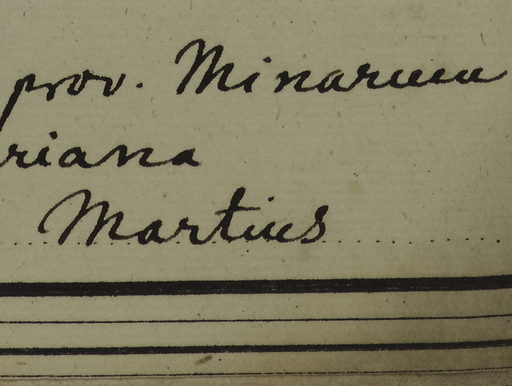 prov. Minarum
riana
Martius